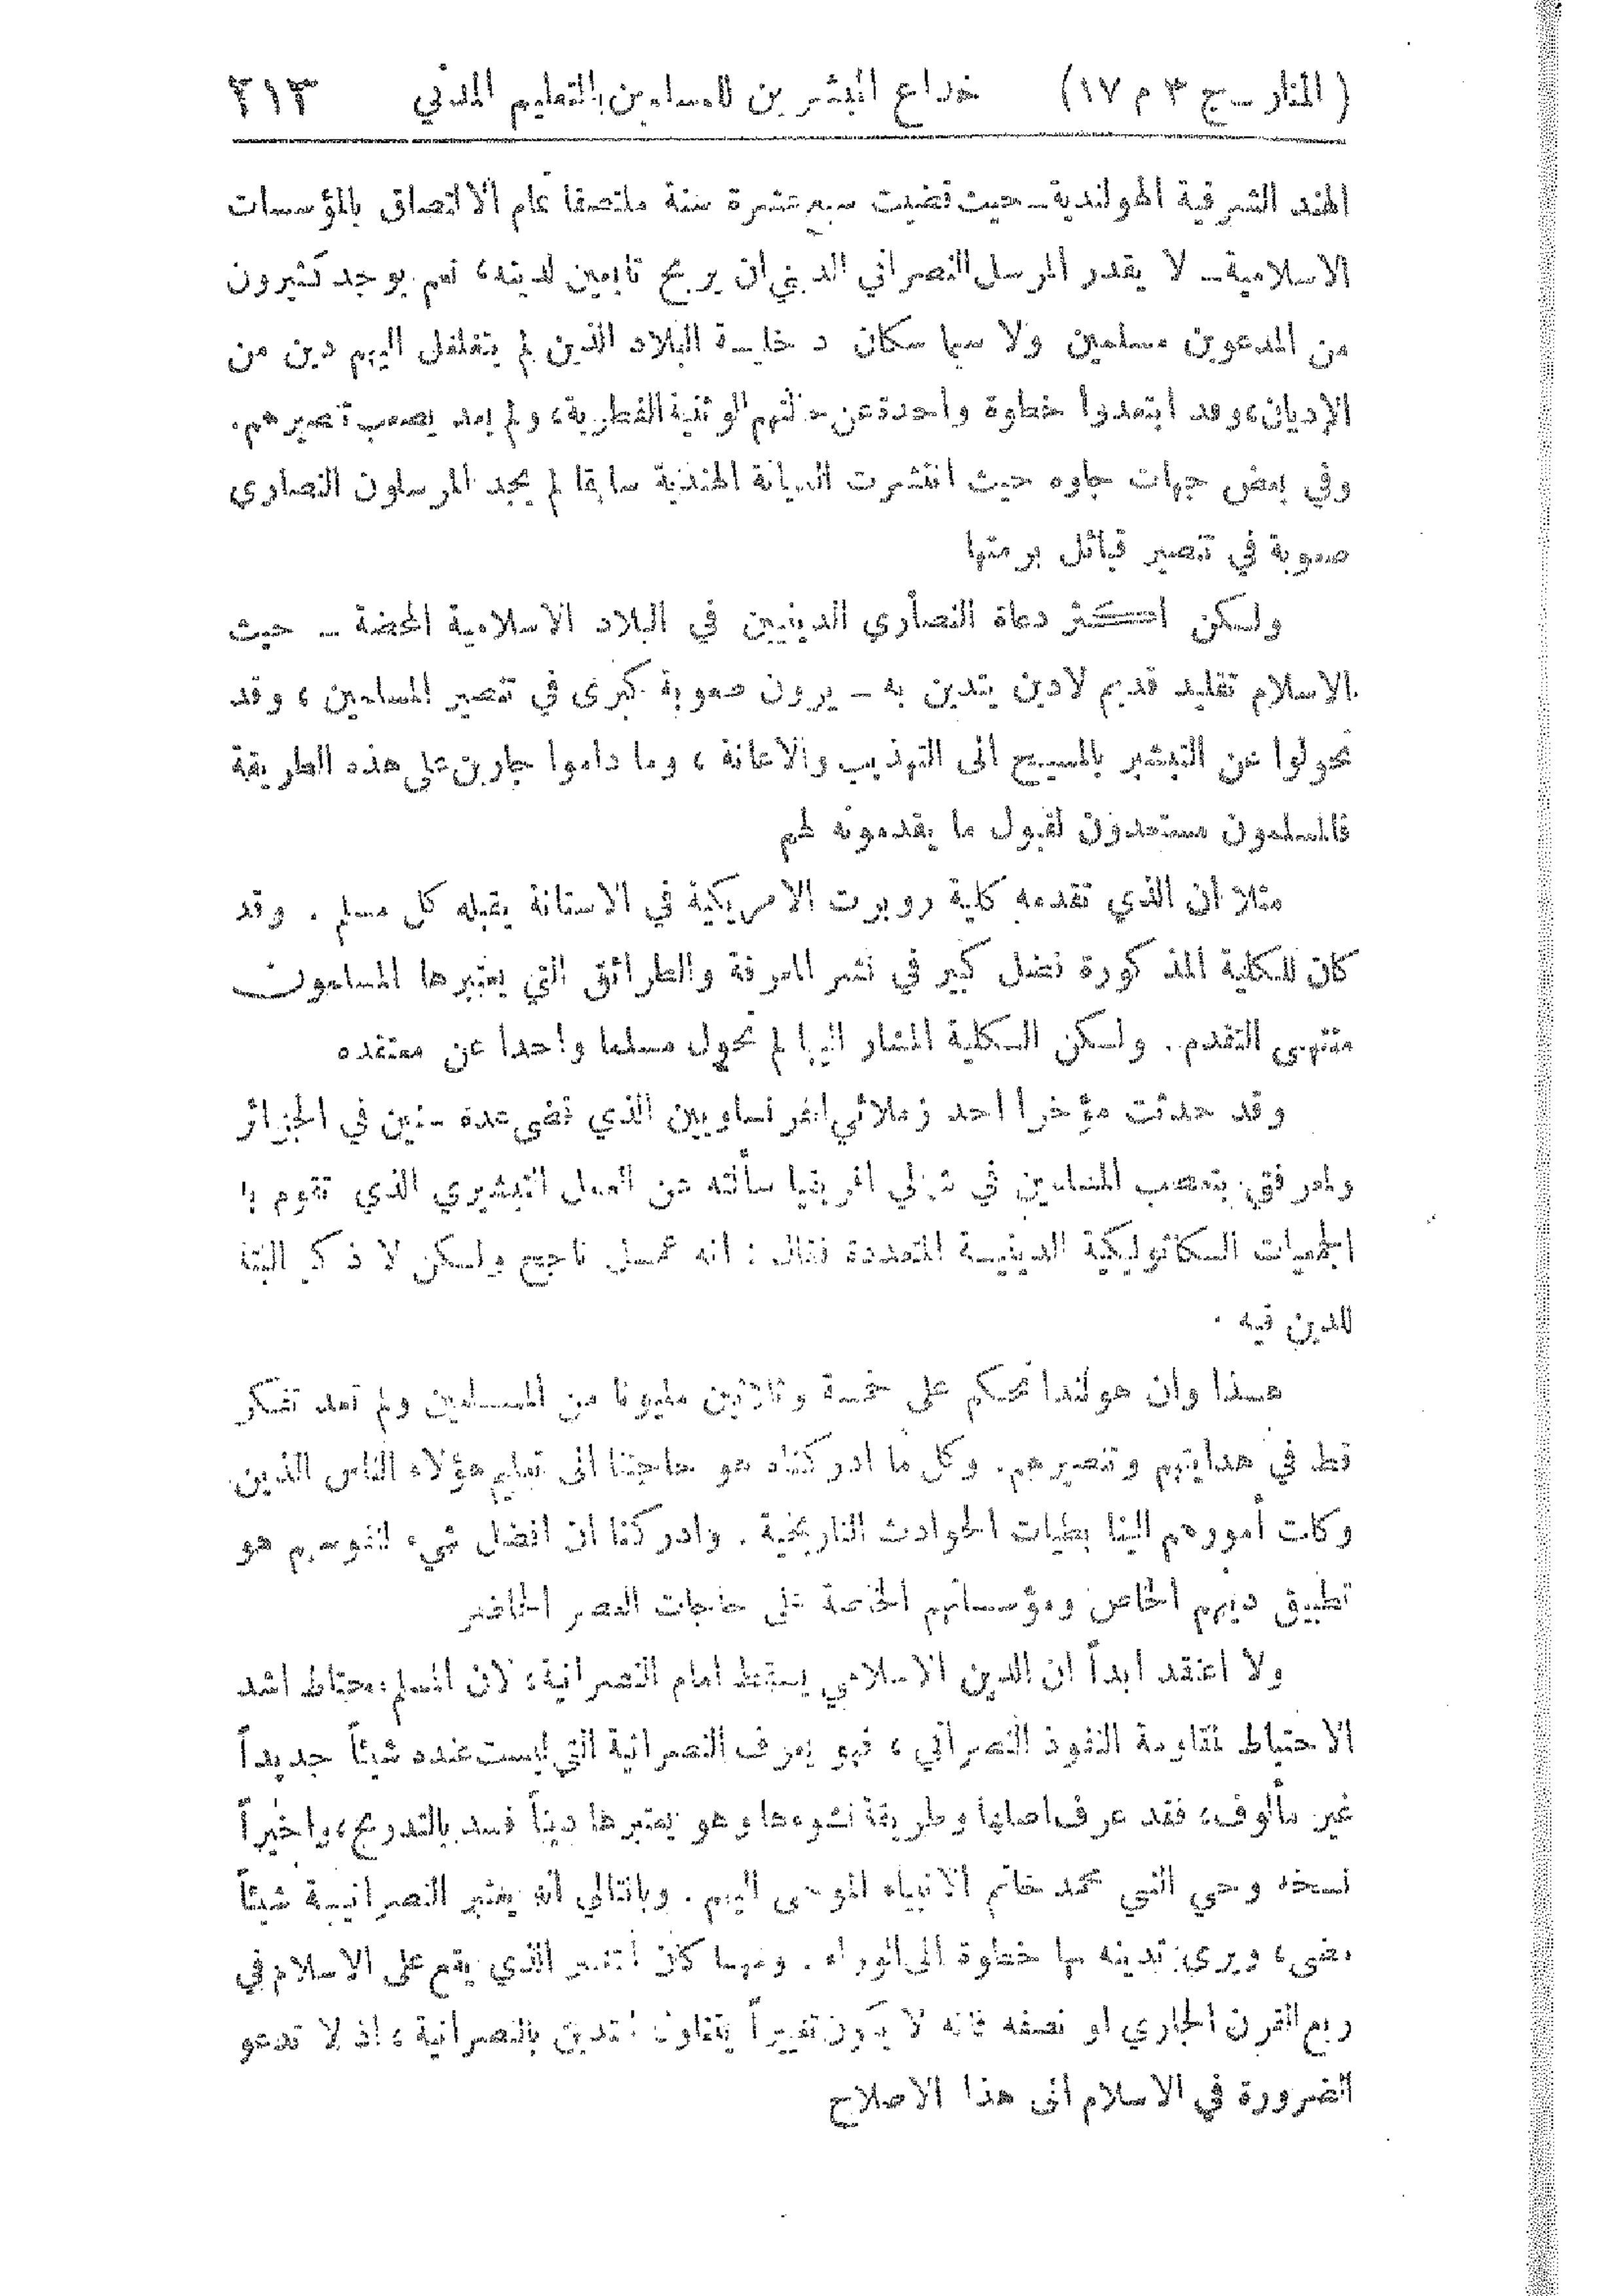 ( المنار ـ ج ٣ م ١٧) خداع المبشرين للمسلمين بالتعليم المدني ٢١٣
الهند الشرقية الهولندية ـ حيث قضيت سبع عشرة سنة ملتصقا تمام الالتصاق بالمؤسسات
الاسلامية ـ لا يقدر المرسل النصراني الديني ان يربح تابعين لدينه، نعم يوجد كثيرون
من المدعوين مسلمين ولا سيما سكان داخلية البلاد الذين لم يتغلغل اليهم دين من
الاديان، وقد ابتعدوا خطوة واحدة عن حالتهم الوثنية الفطرية، ولم يعد يصعب تنصيرهم.
وفي بعض جهات جاوه حيث انتشرت الديانة الهندية سابقا لم يجد المرسلون النصارى
صعوبة في تنصير قبائل برمتها
ولكن اكثر دعاة النصارى الدينيين في البلاد الاسلامية المحضة ـ حيث
الاسلام تقليد قديم لادين يتدين به ـ يرون صعوبة كبرى في تنصير المسلمين ، وقد
تحولوا عن التبشير بالمسيح الى التهذيب والاعانة ، وما داموا جارين على هذه الطريقة
فالمسلمون مستعدون لقبول ما يقدمونه لهم
مثلا ان الذي تقدمه كلية روبرت الامريكية في الاستانة يقبله كل مسلم . وقد
كان للكلية المذكورة فضل كبير في نشر المعرفة والطرائق التي يعتبرها المسلمون
منتهى التقدم . ولكن الكلية المشار اليها لم تحول مسلما واحدا عن معتقده
وقد حدثت مؤخرا احد زملائي الفرنساويين الذي قضى عدة سنين في الجزائر
بتعصب المسلمين في شمالي افريقيا سألته عن العمل التبشيري الذي تقوم به
الجمعيات الكاثوليكية الدينية المتعددة فقال : انه عمل ناجح ولكن لا ذكر البتة
للدين فيه .
هذا وان هولندا تحكم على خمسة وثلاثين مليونا من المسلمين ولم تعد تفتكر
قط في هدايتهم وتنصيرهم . وكل ما ادركناه هو حاجتنا الى تعليم هؤلاء الناس الذين
وكلت أمورهم الينا بطيات الحوادث التاريخية . وادركنا ان افضل شيء لنفوسهم هو
تطبيق دينهم الخاص ومؤسساتهم الخاصة على حاجات العصر الحاضر
ولا اعتقد ابداً ان الدين الاسلامي يسقط امام النصرانية، لان المسلم محتاط اشد
الاحتياط لمقاومة النفوذ النصراني ، فهو يعرف النصرانية التي ليست عنده شيئاً جديداً
غير مألوف، فقد عرف اصلها وطريقة نشوءها وهو يعتبرها ديناً فسد بالتدريج، واخيراً
نسخه وحي النبي محمد خاتم الانبياء الموحى اليهم . وبالتالي انه يعتبر النصرانية شيئاً
مضى، ويرى تدينه بها خطوة الى الوراء . ومهما كان التغير الذي يقع على الاسلام في
ربع القرن الجاري او نصفه فانه لا يكون تغييراً يتناول التدين بالنصرانية ، اذ لا تدعو
الضرورة في الاسلام الى هذا الاصلاح